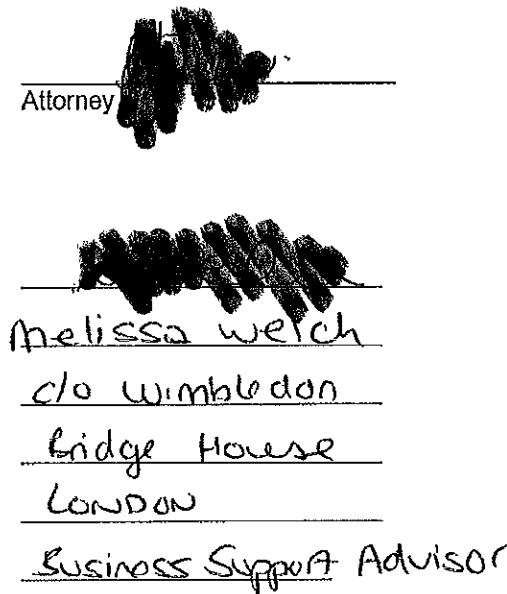 Attorney
Melissa Welch
c/o Wimbledon
Bridge House
LONDON
Business Support Advisor